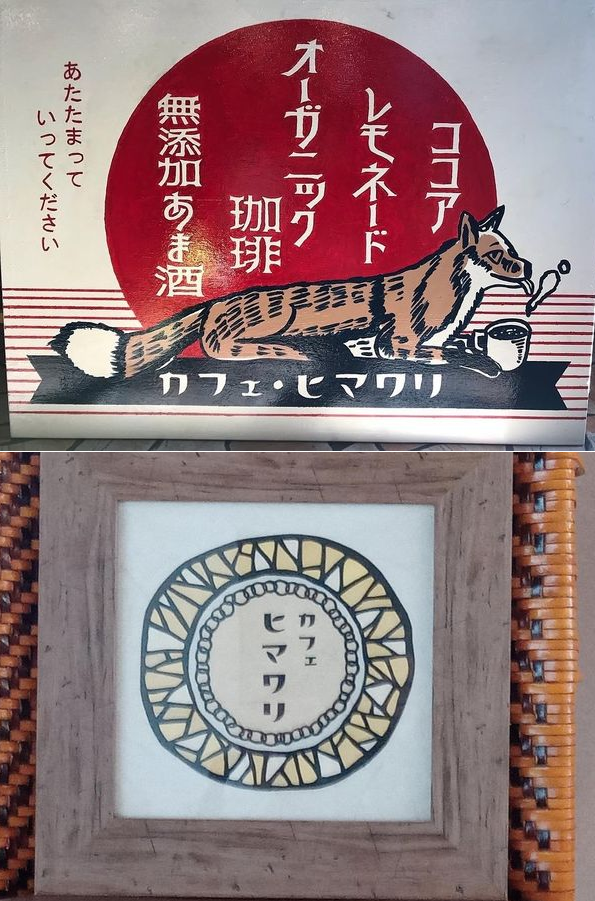 ココア
レモネード
オーガニック
珈琲
無添加あま酒
あたたまって
いってください
カフェ・ヒマワリ
カフェ
ヒマワリ